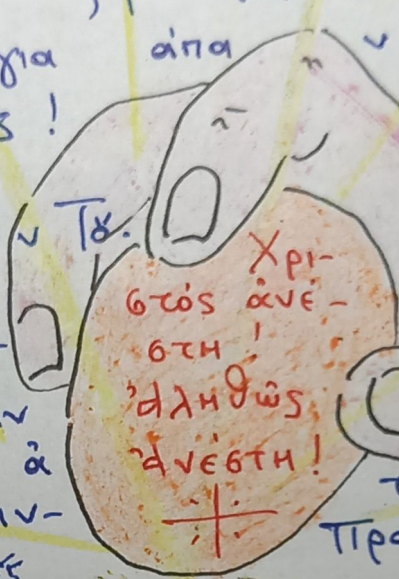 για ἀπα
ς !
ν Τȣ.
Χρι-
στός ἀνέ-
στη !
Ἀληθῶς
ἀνέστη!
ν
ἀ
Προ